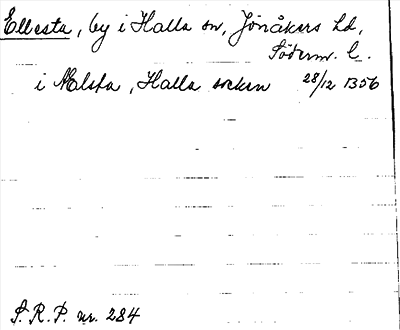 Ellesta, by i Halla sn, Jönåkers hd,
Söderm. l.
i Ælsta, Halla socken 28/12 1356
S. R. P. nr. 284